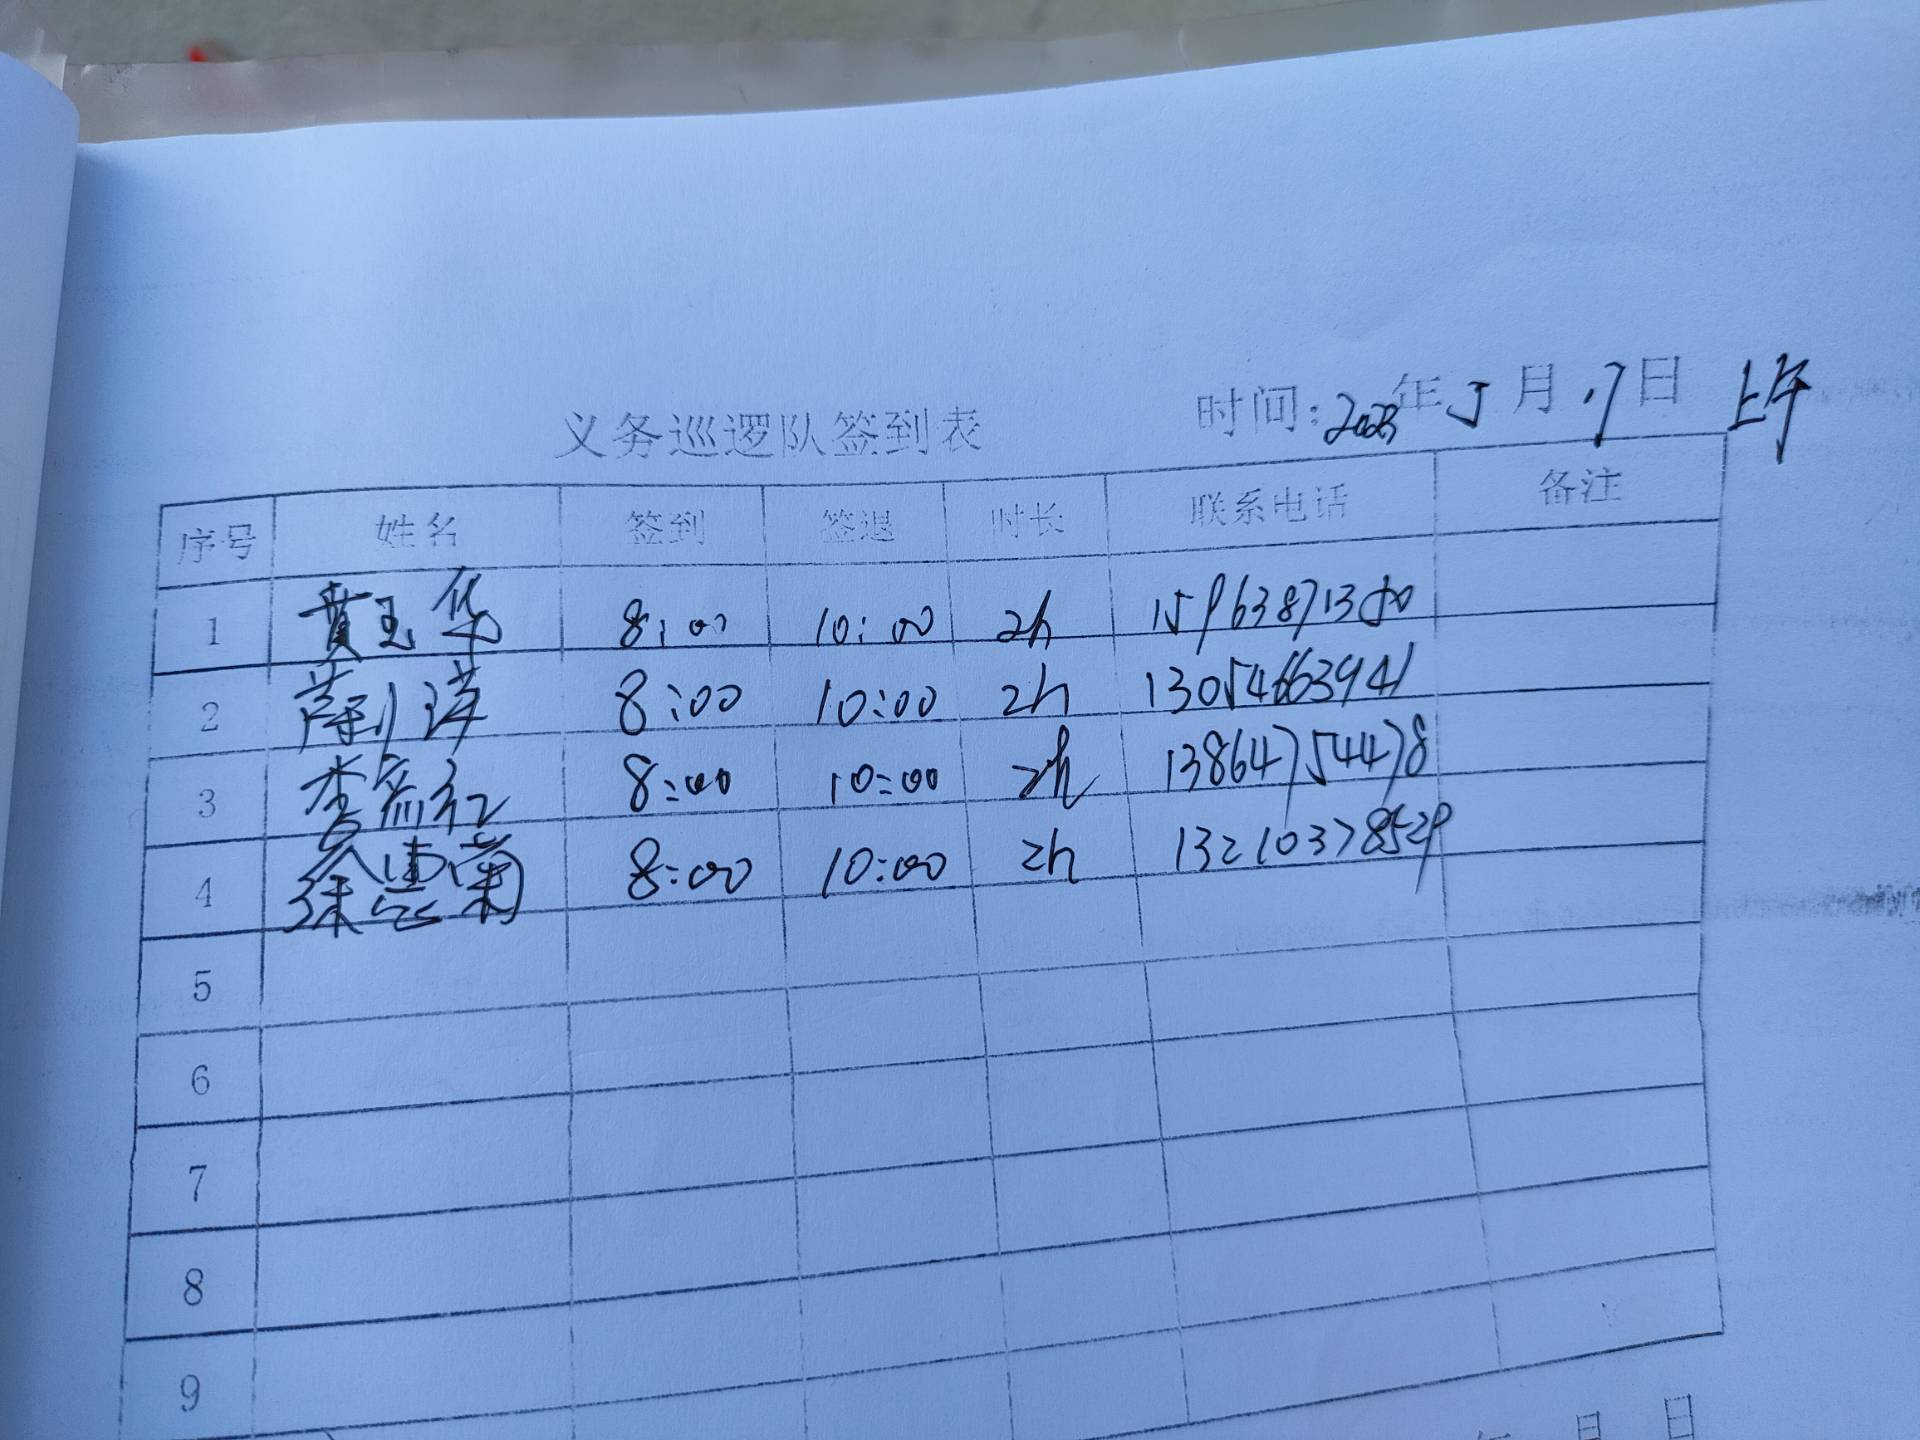 义务巡逻队签到表 时间:2023年5月17日 上午
序号 姓名 签到 签退 时长 联系电话 备注
1 黄玉华 8:00 10:00 2h 15963871350
2 8:00 10:00 2h 13054663941
3 李 红 8:00 10:00 2h 13864754478
4 徐惠兰 8:00 10:00 2h 13210378529
5
6
7
8
9
年 月 日